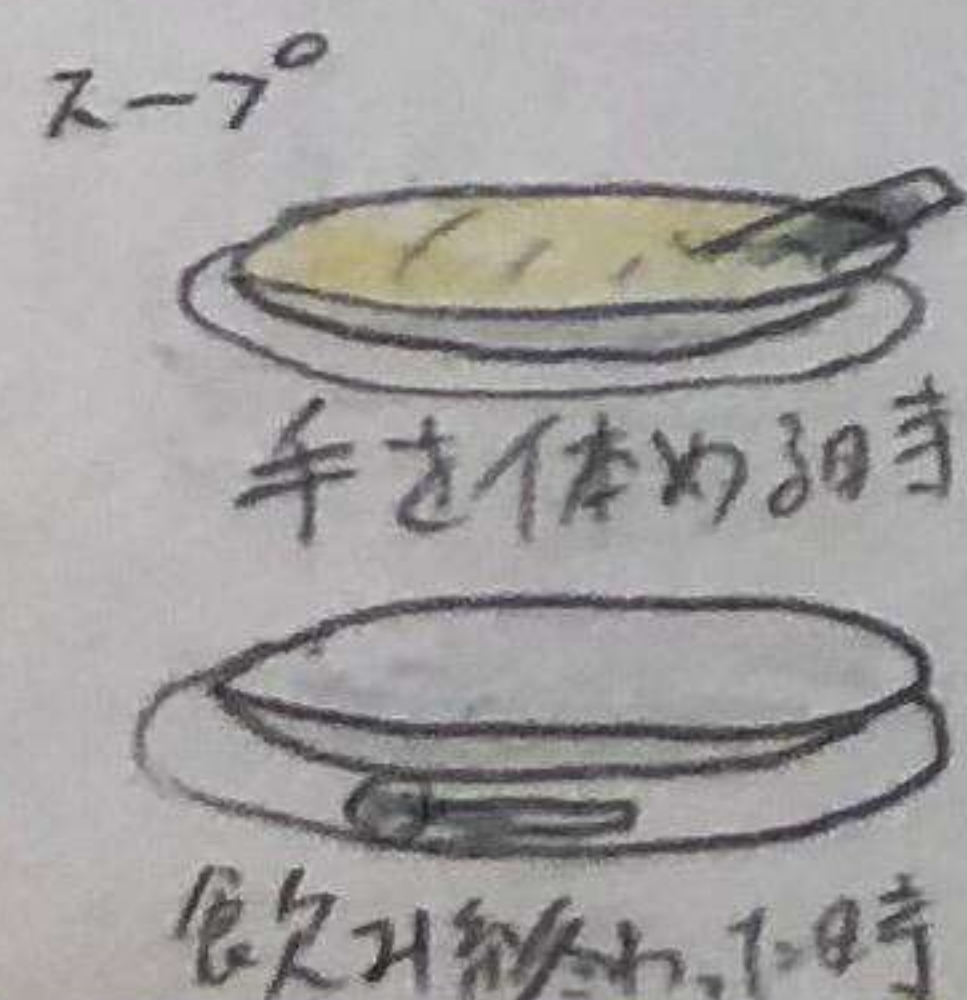 スープ
手を休める時
飲み終わった時